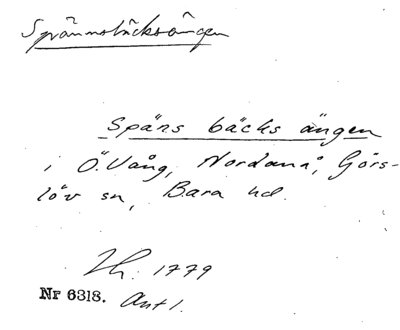 Spännsbäcksängen
Späns bäcks ängen
i Ö. Vång, Nordanå, Görs-
löv sn, Bara hd.
Lh. 1779
Nr 6318. Ant 1.